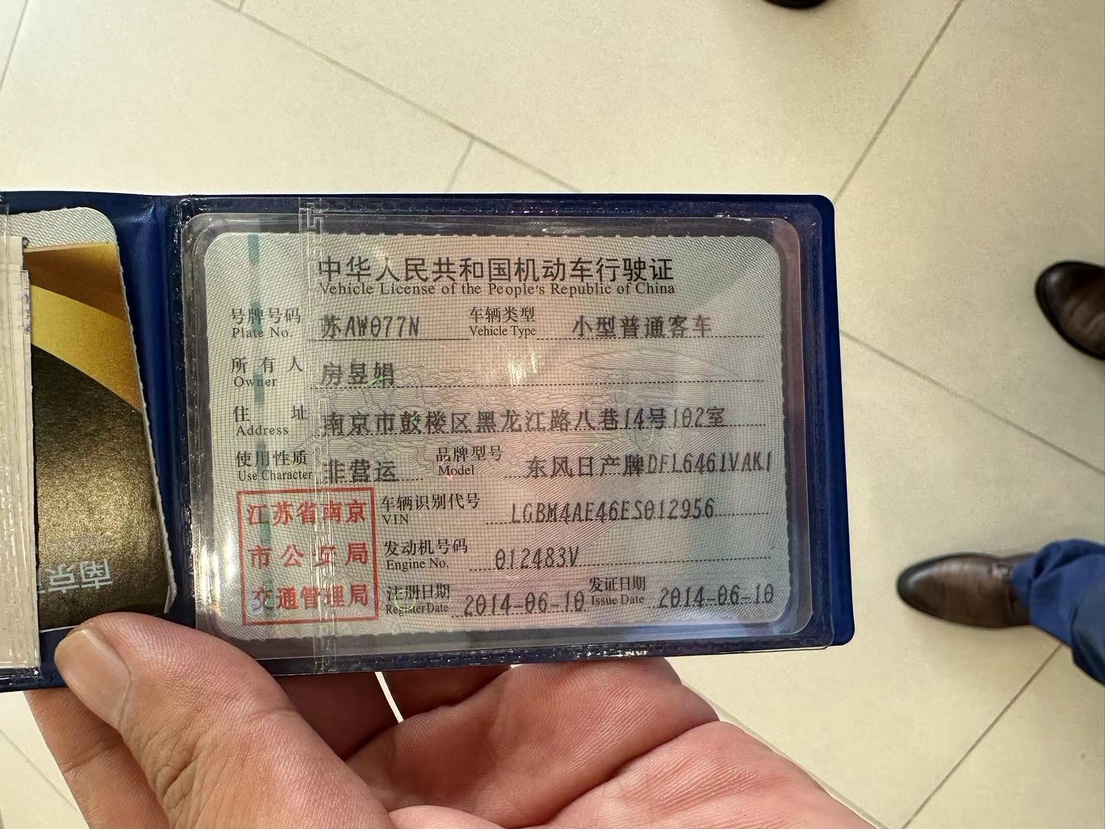 中华人民共和国机动车行驶证
Vehicle License of the People's Republic of China
号牌号码 苏AW077N 车辆类型 小型普通客车
Plate No. Vehicle Type
所有人 房昱娟
Owner
住址 南京市鼓楼区黑龙江路八巷14号102室
Address
使用性质 非营运 品牌型号 东风日产牌DFL6461VAK1
Use Character Model
江苏省南京
市公安局
交通管理局
车辆识别代号 LGBM4AE46ES012956
VIN
发动机号码 012483V
Engine No.
注册日期 2014-06-10 发证日期 2014-06-10
Register Date Issue Date
南京